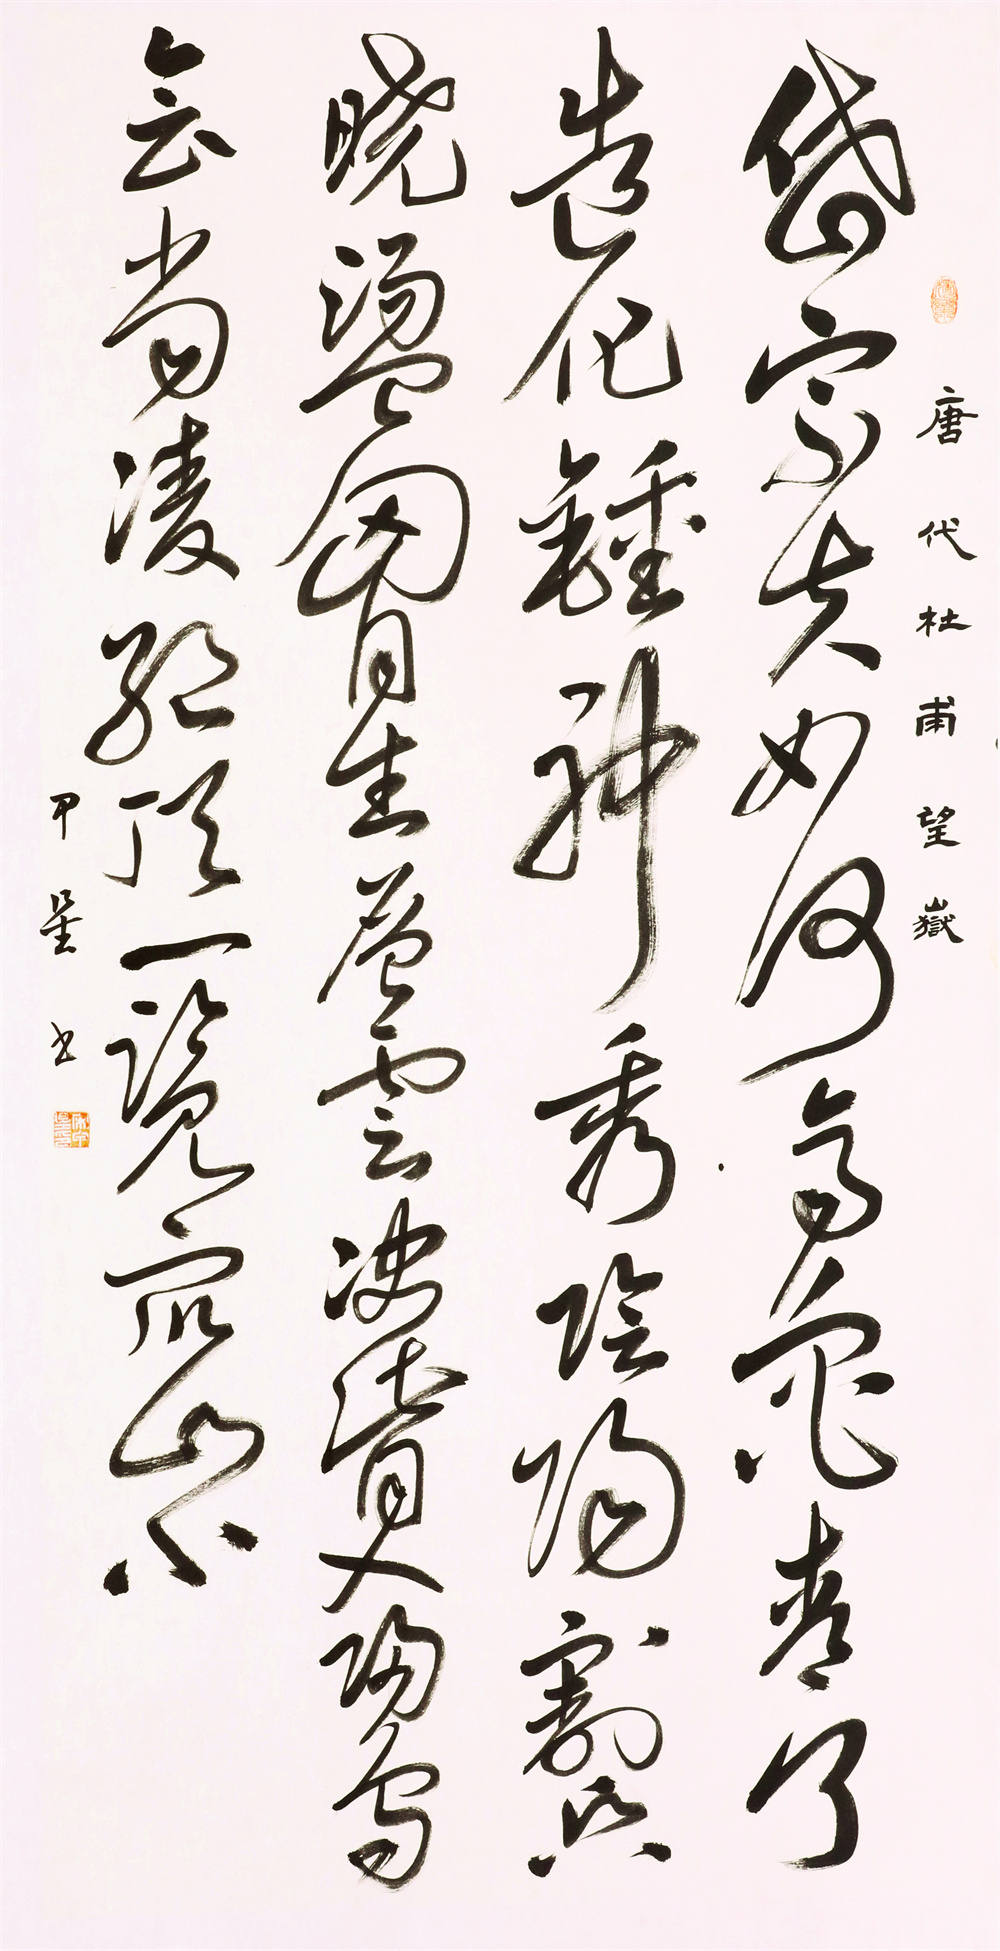 唐代杜甫望嶽
岱宗夫如何齊魯青了
造化鍾神秀陰陽割昏
曉盪胷生層雲決眥入歸鳥
會當凌絕頂一覽眾山小
甲星书